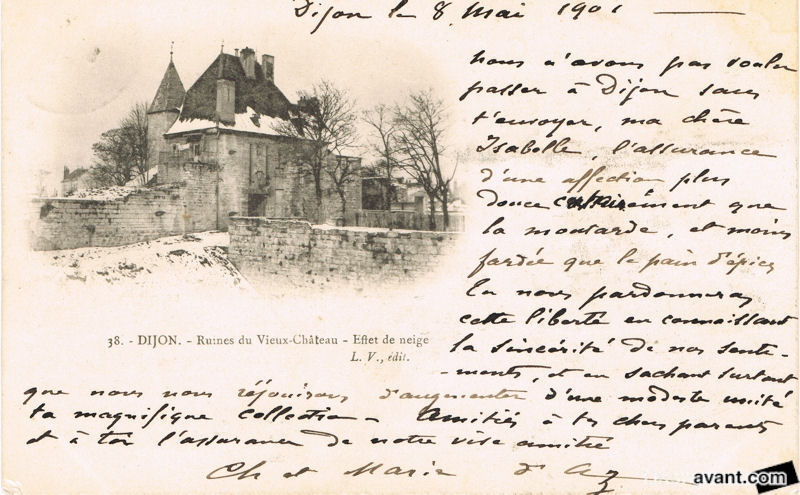 Dijon le 8 Mai 1901
nous n'avons pas voulu
passer à Dijon sans
t'envoyer, ma chère
Isabelle, l'assurance
d'une affection plus
douce certainement que
la moutarde, et moins
fardée que le pain d'épices
Tu nous pardonneras
cette liberté en connaissant
la sincérité de nos senti-
-ments, et en sachant surtout
que nous nous réjouissons d'augmenter d'une modeste unité
ta magnifique collection - Amitiés à tes chers parents
et à toi l'assurance de notre vive amitié
Ch et Marie d'Az
38. - DIJON. - Ruines du Vieux-Château - Effet de neige
L. V., édit.
avant.com